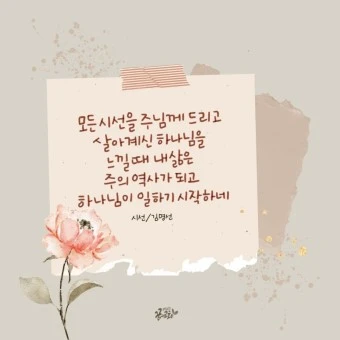 모든 시선을 주님께 드리고
살아계신 하나님을
느낄때 내 삶은
주의 역사가 되고
하나님이 일하기 시작하네
시선/김명선